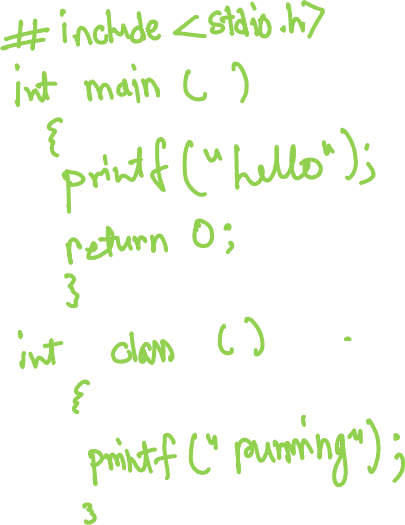 #include <stdio.h>
int main ( )
{
printf("hello");
return 0;
}
int class ( )
{
printf("punning");
}